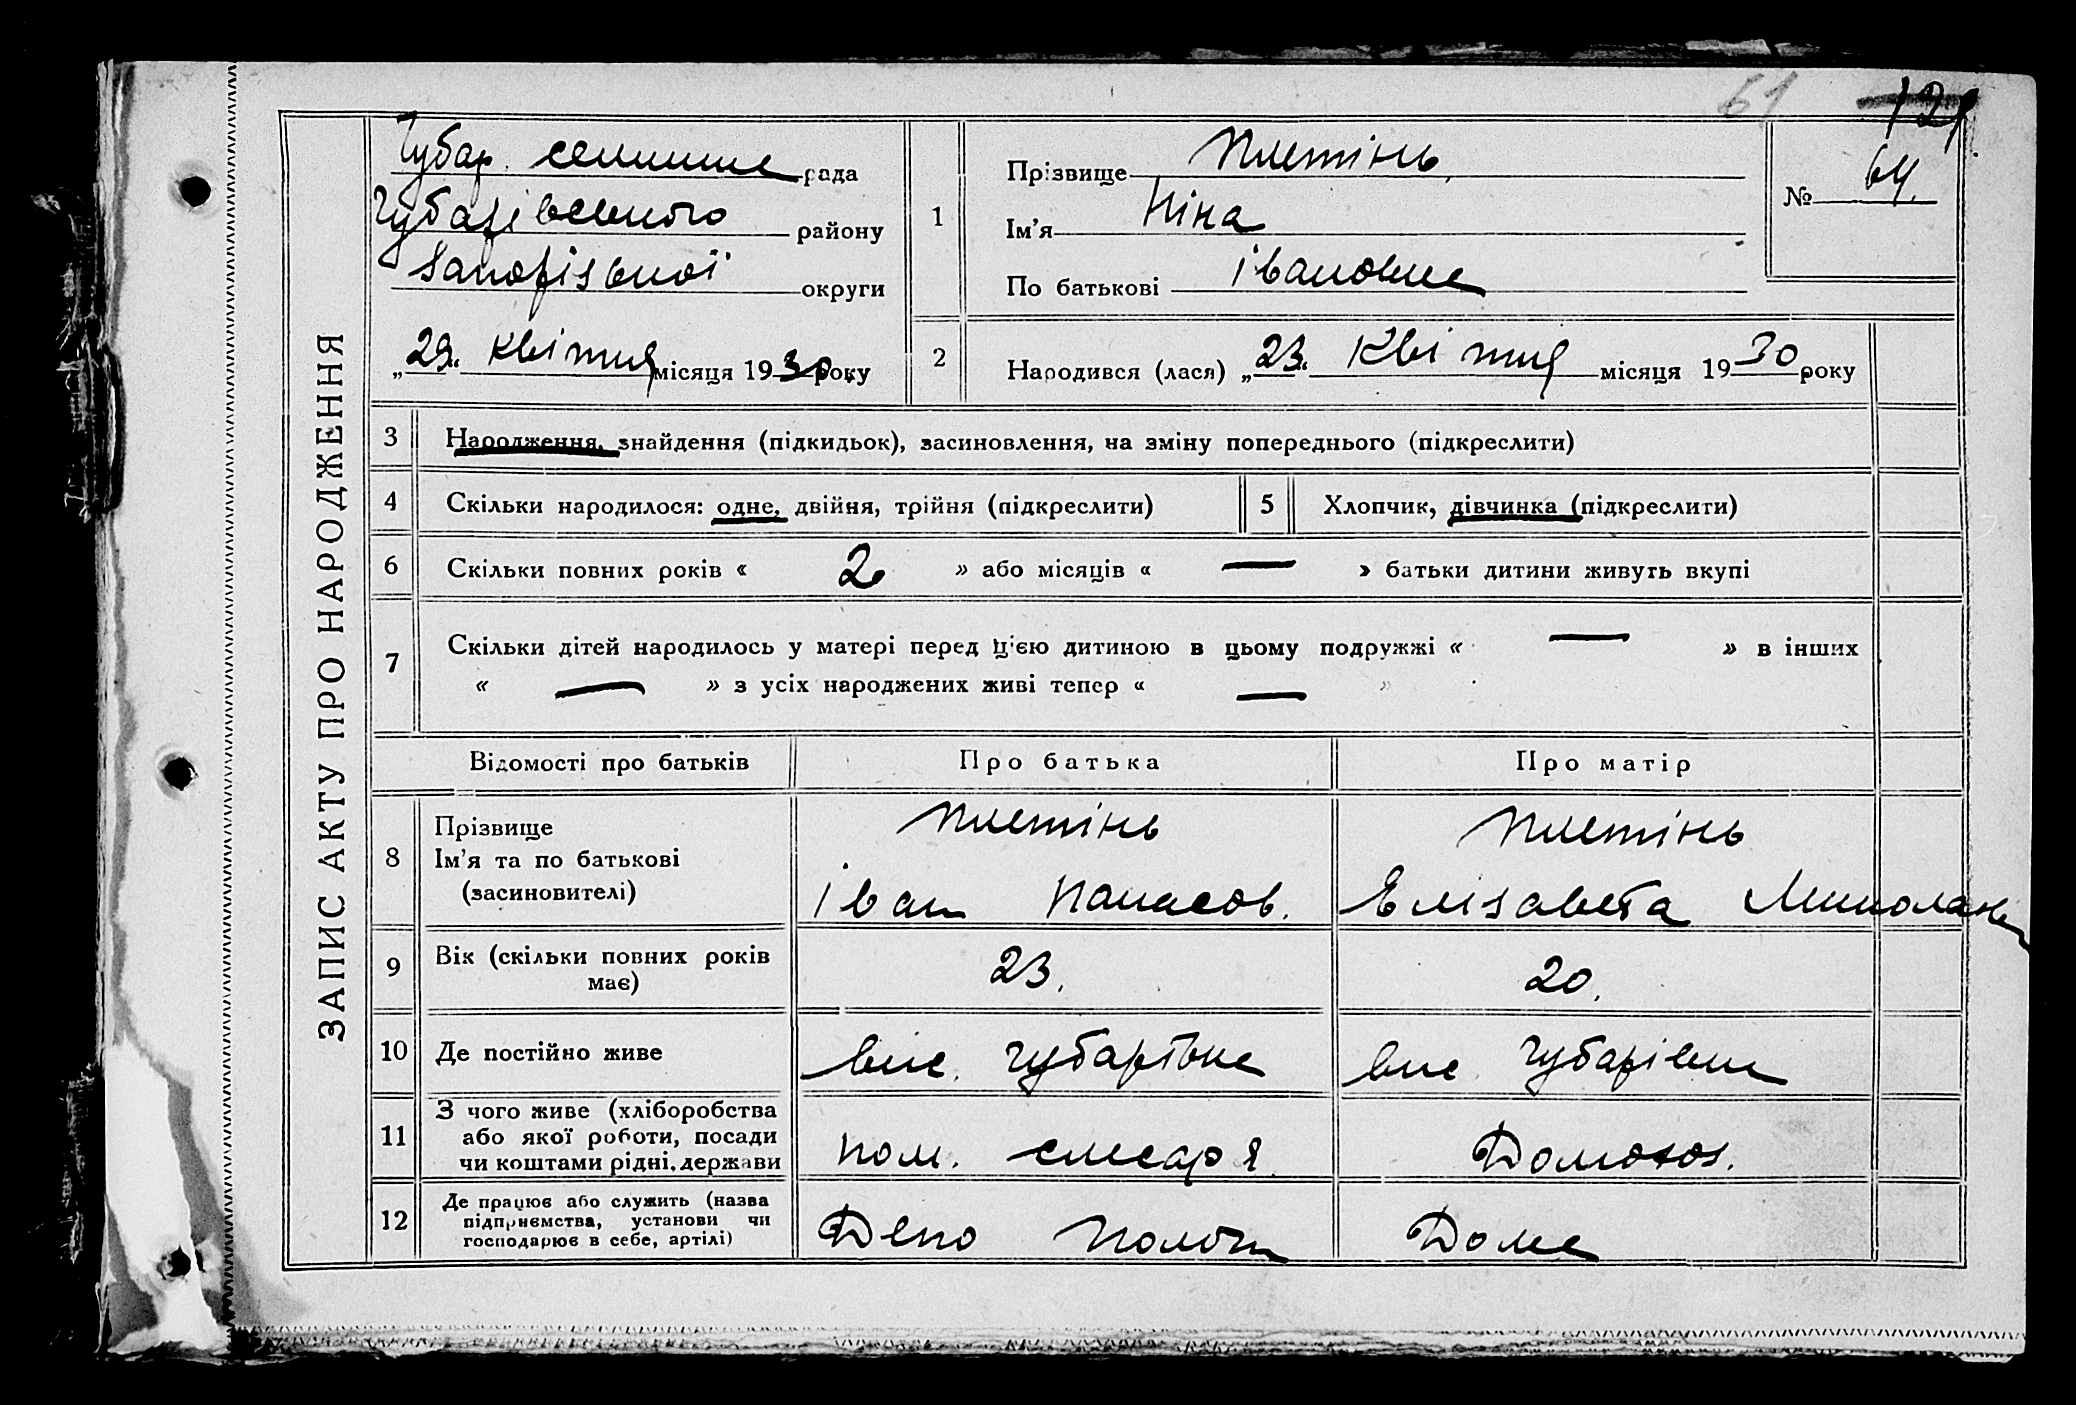 61 121
ЗАПИС АКТУ ПРО НАРОДЖЕННЯ
Чубар. селищне рада
Чубарівського району
Запорізької округи
„29“ квітня місяця 1930 року
1
Прізвище Плетінь
Ім’я Ніна
По батькові Івановне
№ 64.
2 Народився (лася) „23“ квітня місяця 1930 року
3 Народження, знайдення (підкидьок), засиновлення, на зміну попереднього (підкреслити)
4 Скільки народилося: одне, двійня, трійня (підкреслити) 5 Хлопчик, дівчинка (підкреслити)
6 Скільки повних років « 2 » або місяців « — » батьки дитини живуть вкупі
7 Скільки дітей народилось у матері перед цією дитиною в цьому подружжі « — » в інших
« — » з усіх народжених живі тепер « — »
Відомості про батьків Про батька Про матір
8 Прізвище Ім’я та по батькові (засиновителі) Плетінь Іван Панасов. Плетінь Єлізавета
9 Вік (скільки повних років має) 23. 20.
10 Де постійно живе вис. Чубарівке вис. Чубарівке
11 З чого живе (хліборобства або якої роботи, посади чи коштами рідні, держави пом. слесаря Домогос.
12 Де працює або служить (назва підприємства, установи чи господарює в себе, артілі) Депо Пологи Доме